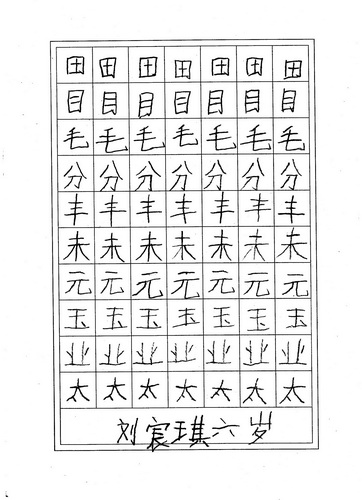 田田田田田田田
目目目目目目目
毛毛毛毛毛毛毛
分分分分分分分
丰丰丰丰丰丰丰
未未未未未未未
元元元元元元元
玉玉玉玉玉玉玉
业业业业业业业
太太太太太太太
刘宸琪六岁